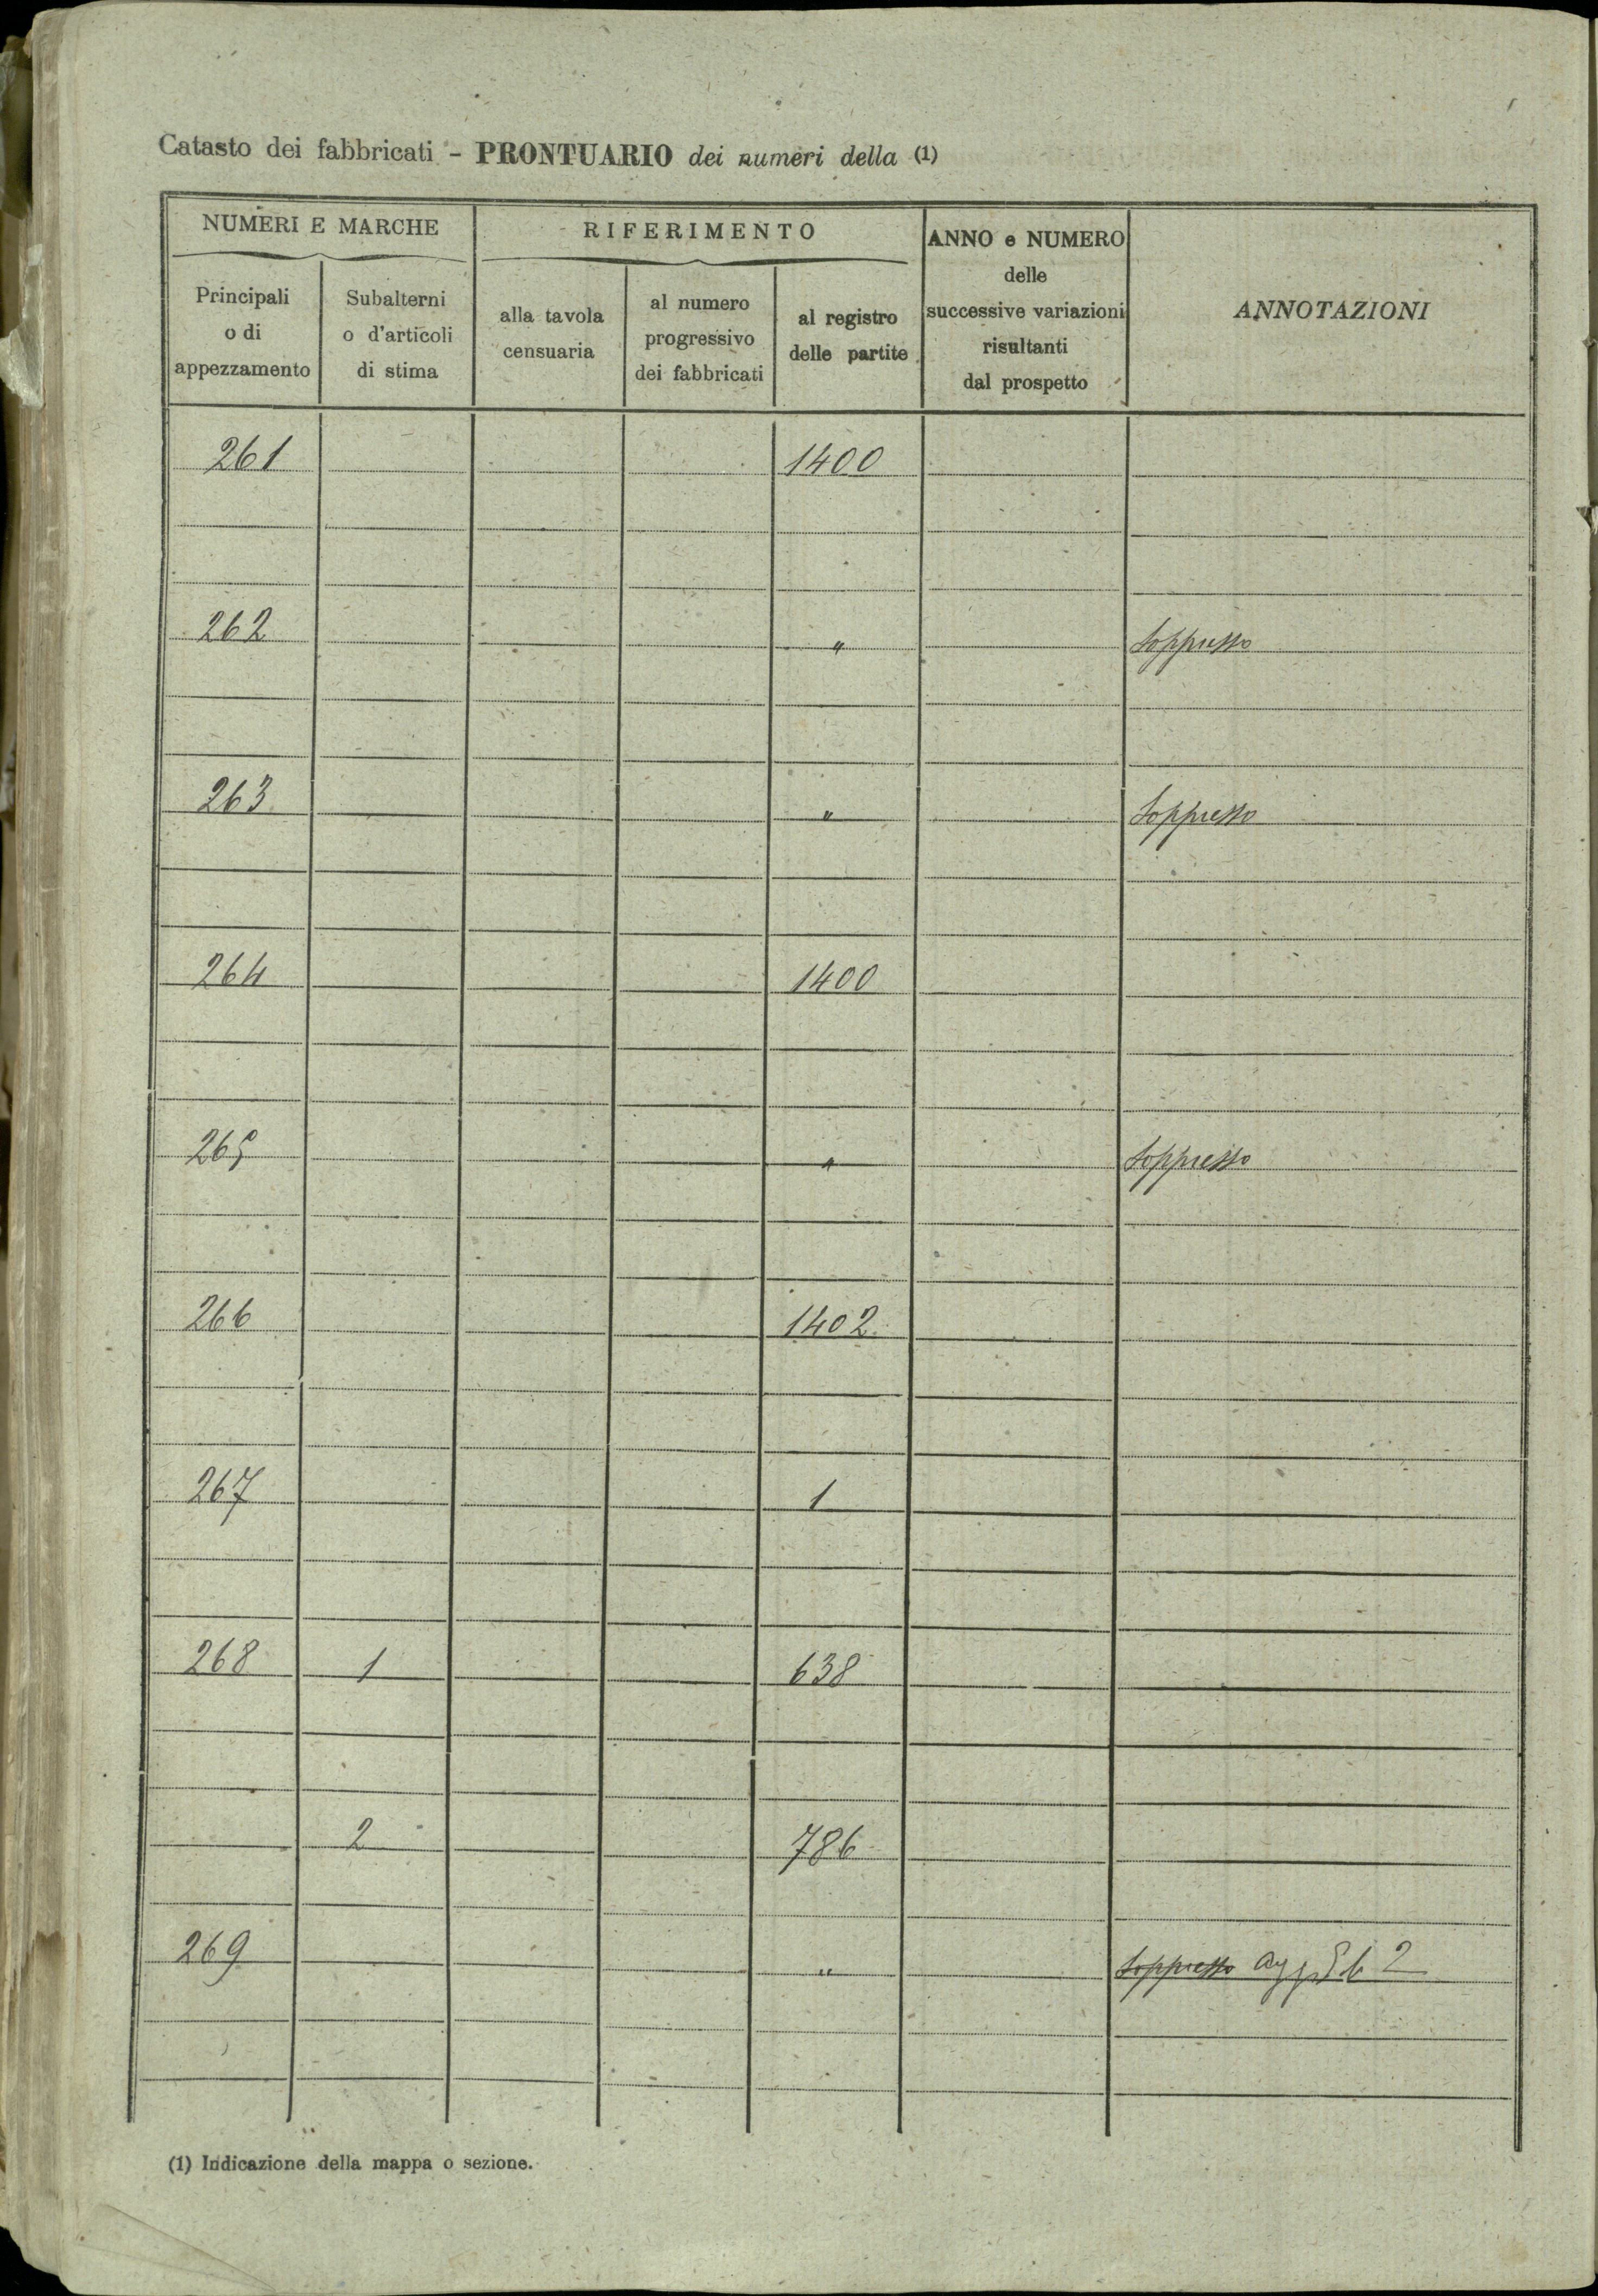 Catasto dei fabbricati - PRONTUARIO dei numeri della (1)
NUMERI E MARCHE
RIFERIMENTO
ANNO e NUMERO
delle
successive variazioni
risultanti
dal prospetto
ANNOTAZIONI
Principali
o di
appezzamento
Subalterni
o d'articoli
di stima
alla tavola
censuaria
al numero
progressivo
dei fabbricati
al registro
delle partite
261 1400
262 " Soppresso
263 " Soppresso
264 1400
265 " Soppresso
266 1402
267 1
268 1 638
2 786
269 " Soppresso 2
(1) Indicazione della mappa o sezione.